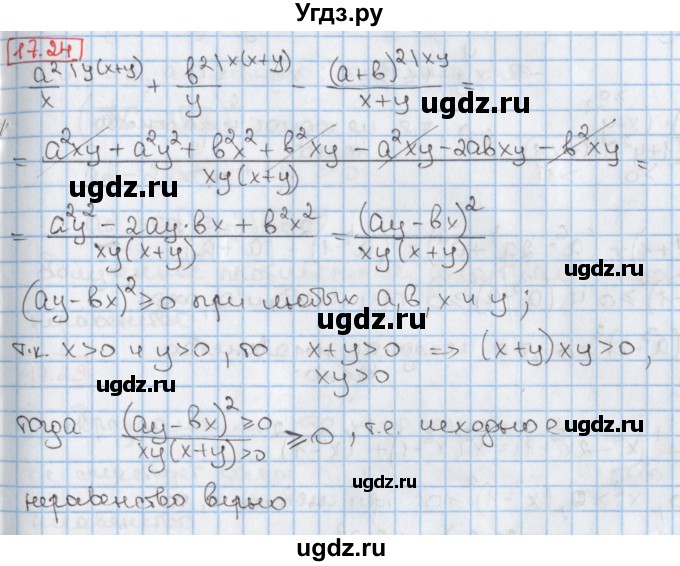 Угдз.ру
17.24
a²\y(x+y)/x + b²\x(x+y)/y − (a+b)²\xy/(x+y) =
ugdz.ru
= (a²xy + a²y² + b²x² + b²xy − a²xy − 2abxy − b²xy)/(xy(x+y)) =
ugdz.ru ugdz.ru
= (a²y² − 2ay·bx + b²x²)/(xy(x+y)) = (ay−bx)²/(xy(x+y))
ugdz.ru
(ay−bx)² ≥ 0 при любых a, b, x и y;
ugdz.ru
т.к. x>0 и y>0, то x+y>0 => (x+y)xy>0,
xy>0
ugdz.ru ugdz.ru
тогда (ay−bx)² ≥0/(xy(x+y)>0) ≥ 0, т.е. исходное
ugdz.ru
неравенство верно
ugdz.ru
ugdz.ru